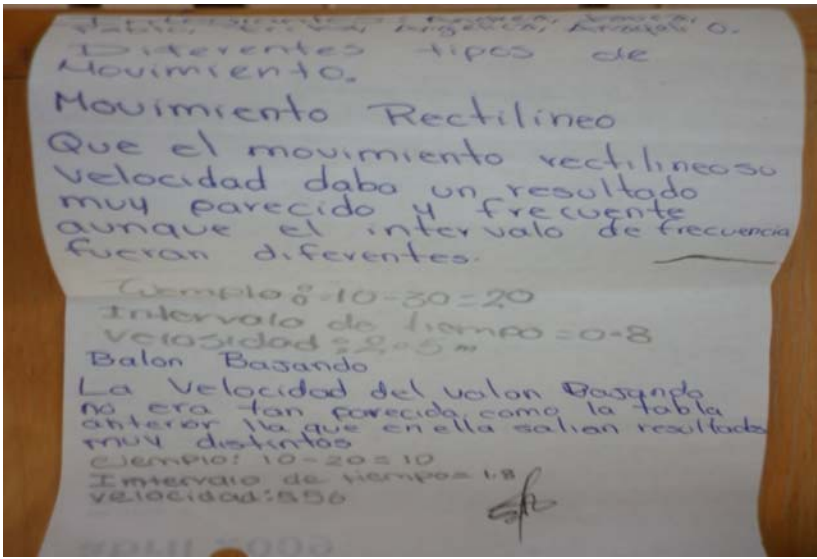 Diferentes tipos de
Movimiento.
Movimiento Rectilineo
Que el movimiento rectilineo su
velocidad daba un resultado
muy parecido y frecuente
aunque el intervalo de frecuencia
fueran diferentes.
Ejemplo: 10-30=20
Intervalo de tiempo = 0-8
Velosidad: 2.5 m
Balon Bajando
La Velocidad del valon Bajando
no era tan parecida como la tabla
anterior lla que en ella salian resultados
muy distintos
ejemplo: 10-20=10
Intervalo de tiempo= 1.8
velocidad: 5.56